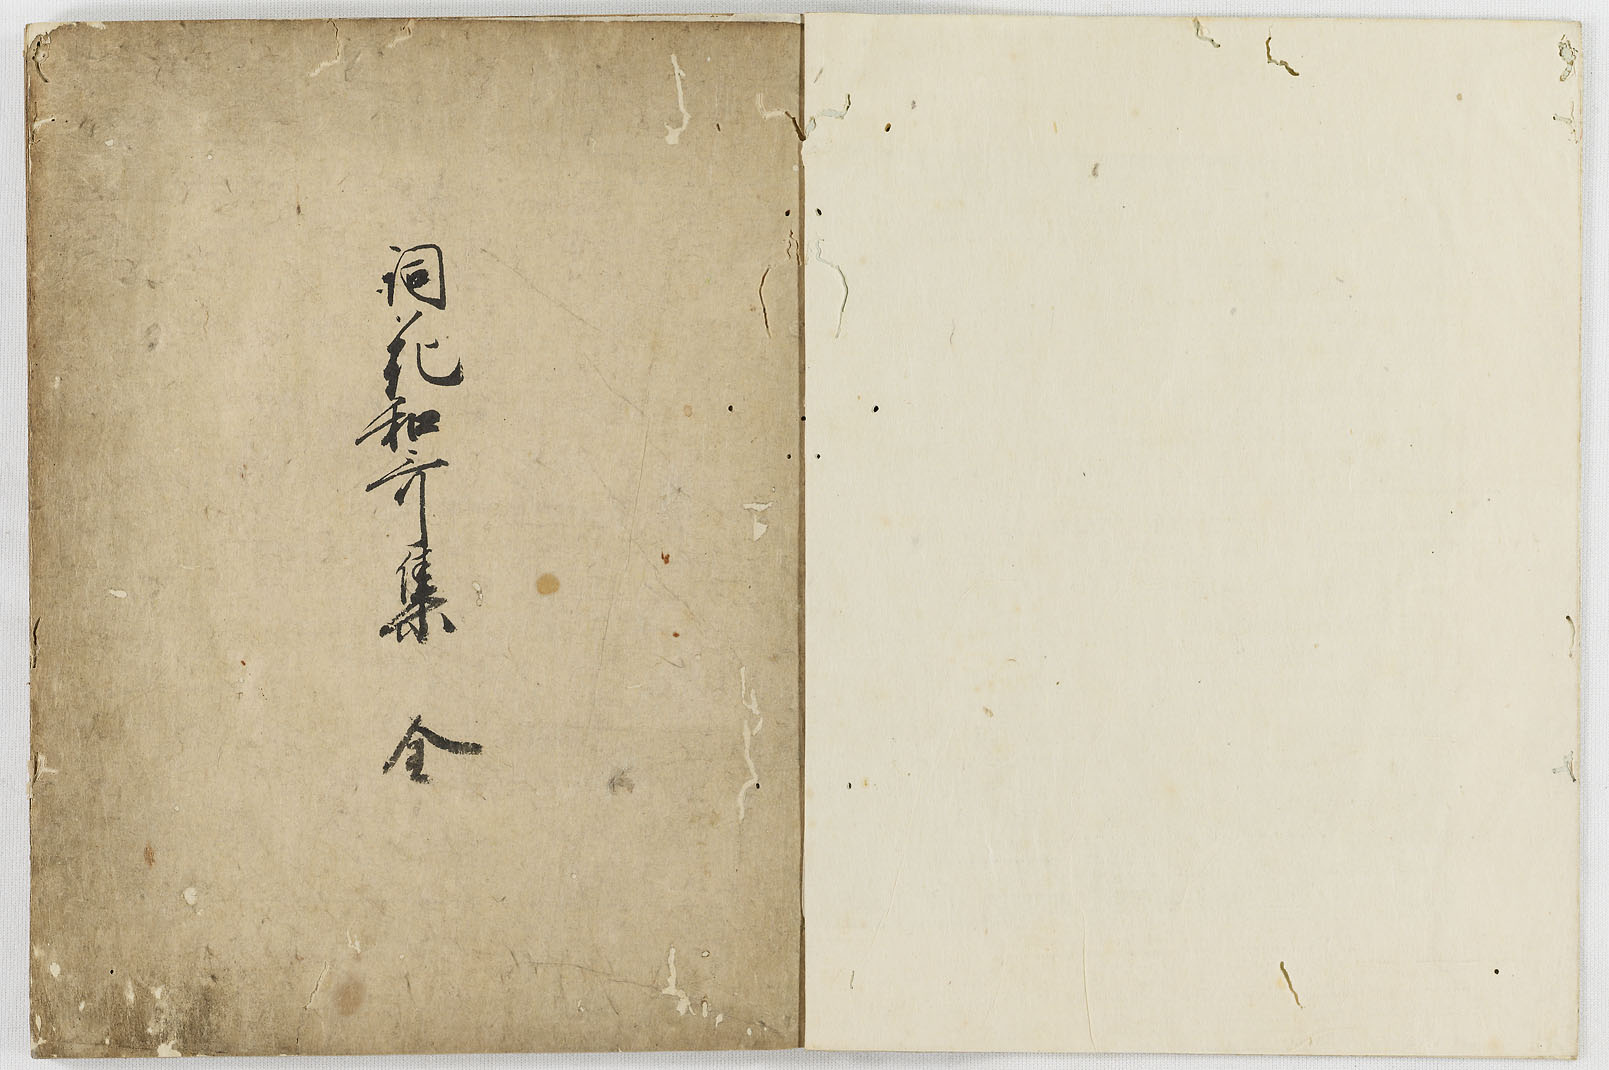 詞花和哥集　全